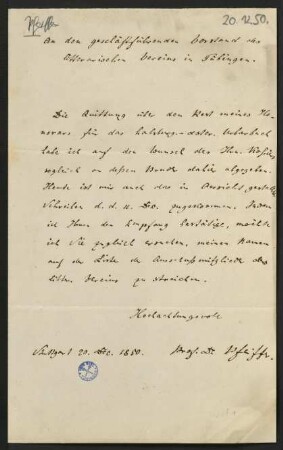 Pfeiffer
20.12.50.
An den geschäftsführenden Vorstand des
Litterarischen Vereins in Tübingen.
Die Quittung über den Rest meines Ho-
norars für das
habe ich auf den Wunsch des Hrn.
sogleich an dessen Bruder dahier abgegeben.
Heute ist mir auch das in Aussicht gestellte
Schreiben d. d. 11. Dec. zugekommen. Indem
ich Ihnen den Empfang bestätige, möchte
ich Sie zugleich ersuchen, meinen Namen
auf der Liste der Ausschußmitglieder des
litter. Vereins zu streichen.
Hochachtungsvoll
Stuttgart 20. Dec. 1850. Pfeiffer.